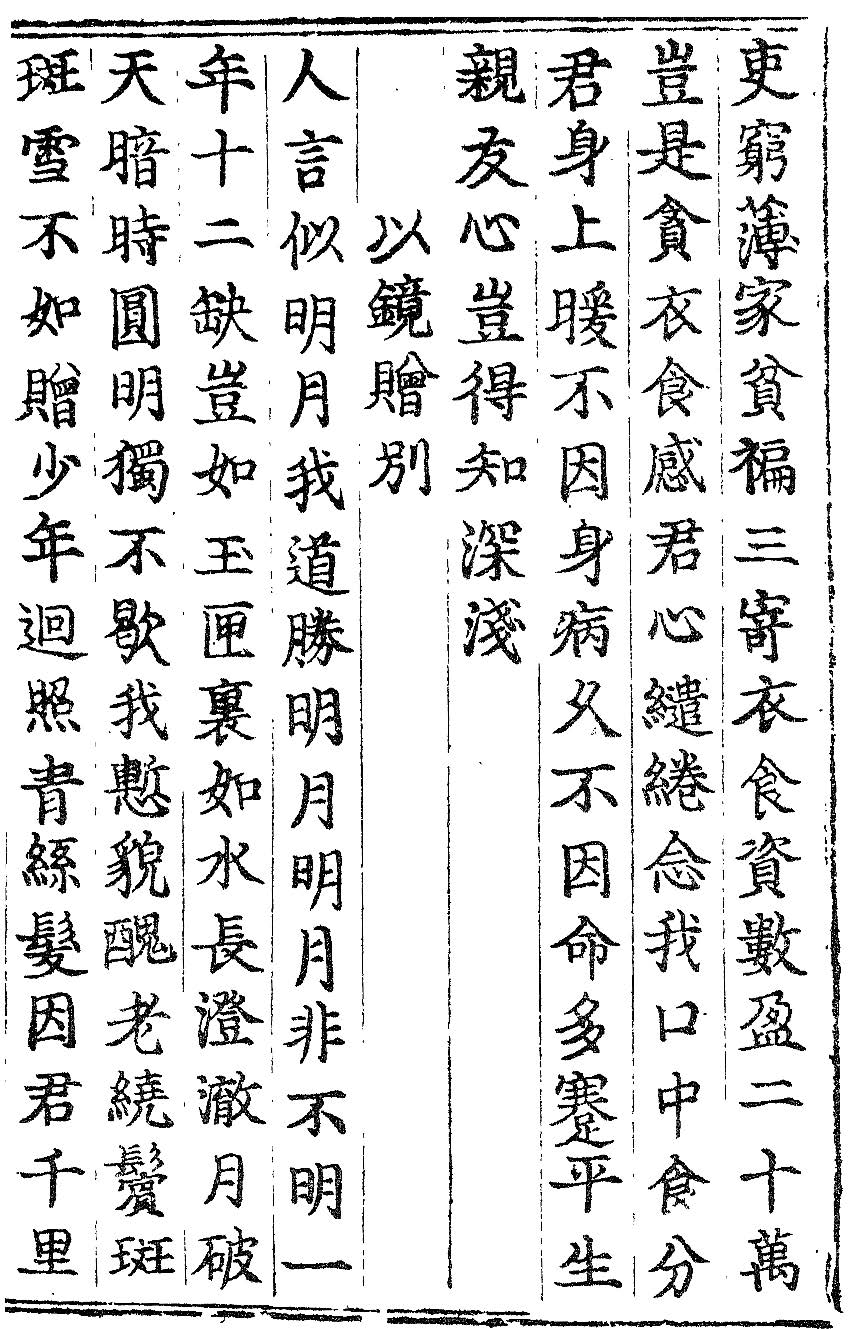 吏窮薄家貧褊三寄衣食資數盈二十萬
豈是貪衣食感君心繾綣念我口中食分
君身上暖不因身病久不因命多蹇平生
親友心豈得知深淺
以鏡贈別
人言似明月我道勝明月明月非不明一
年十二缺豈如玉匣裏如水長澄澈月破
天暗時圓明獨不歇我慙貌醜老繞鬢斑
斑雪不如贈少年迴照青絲髮因君千里